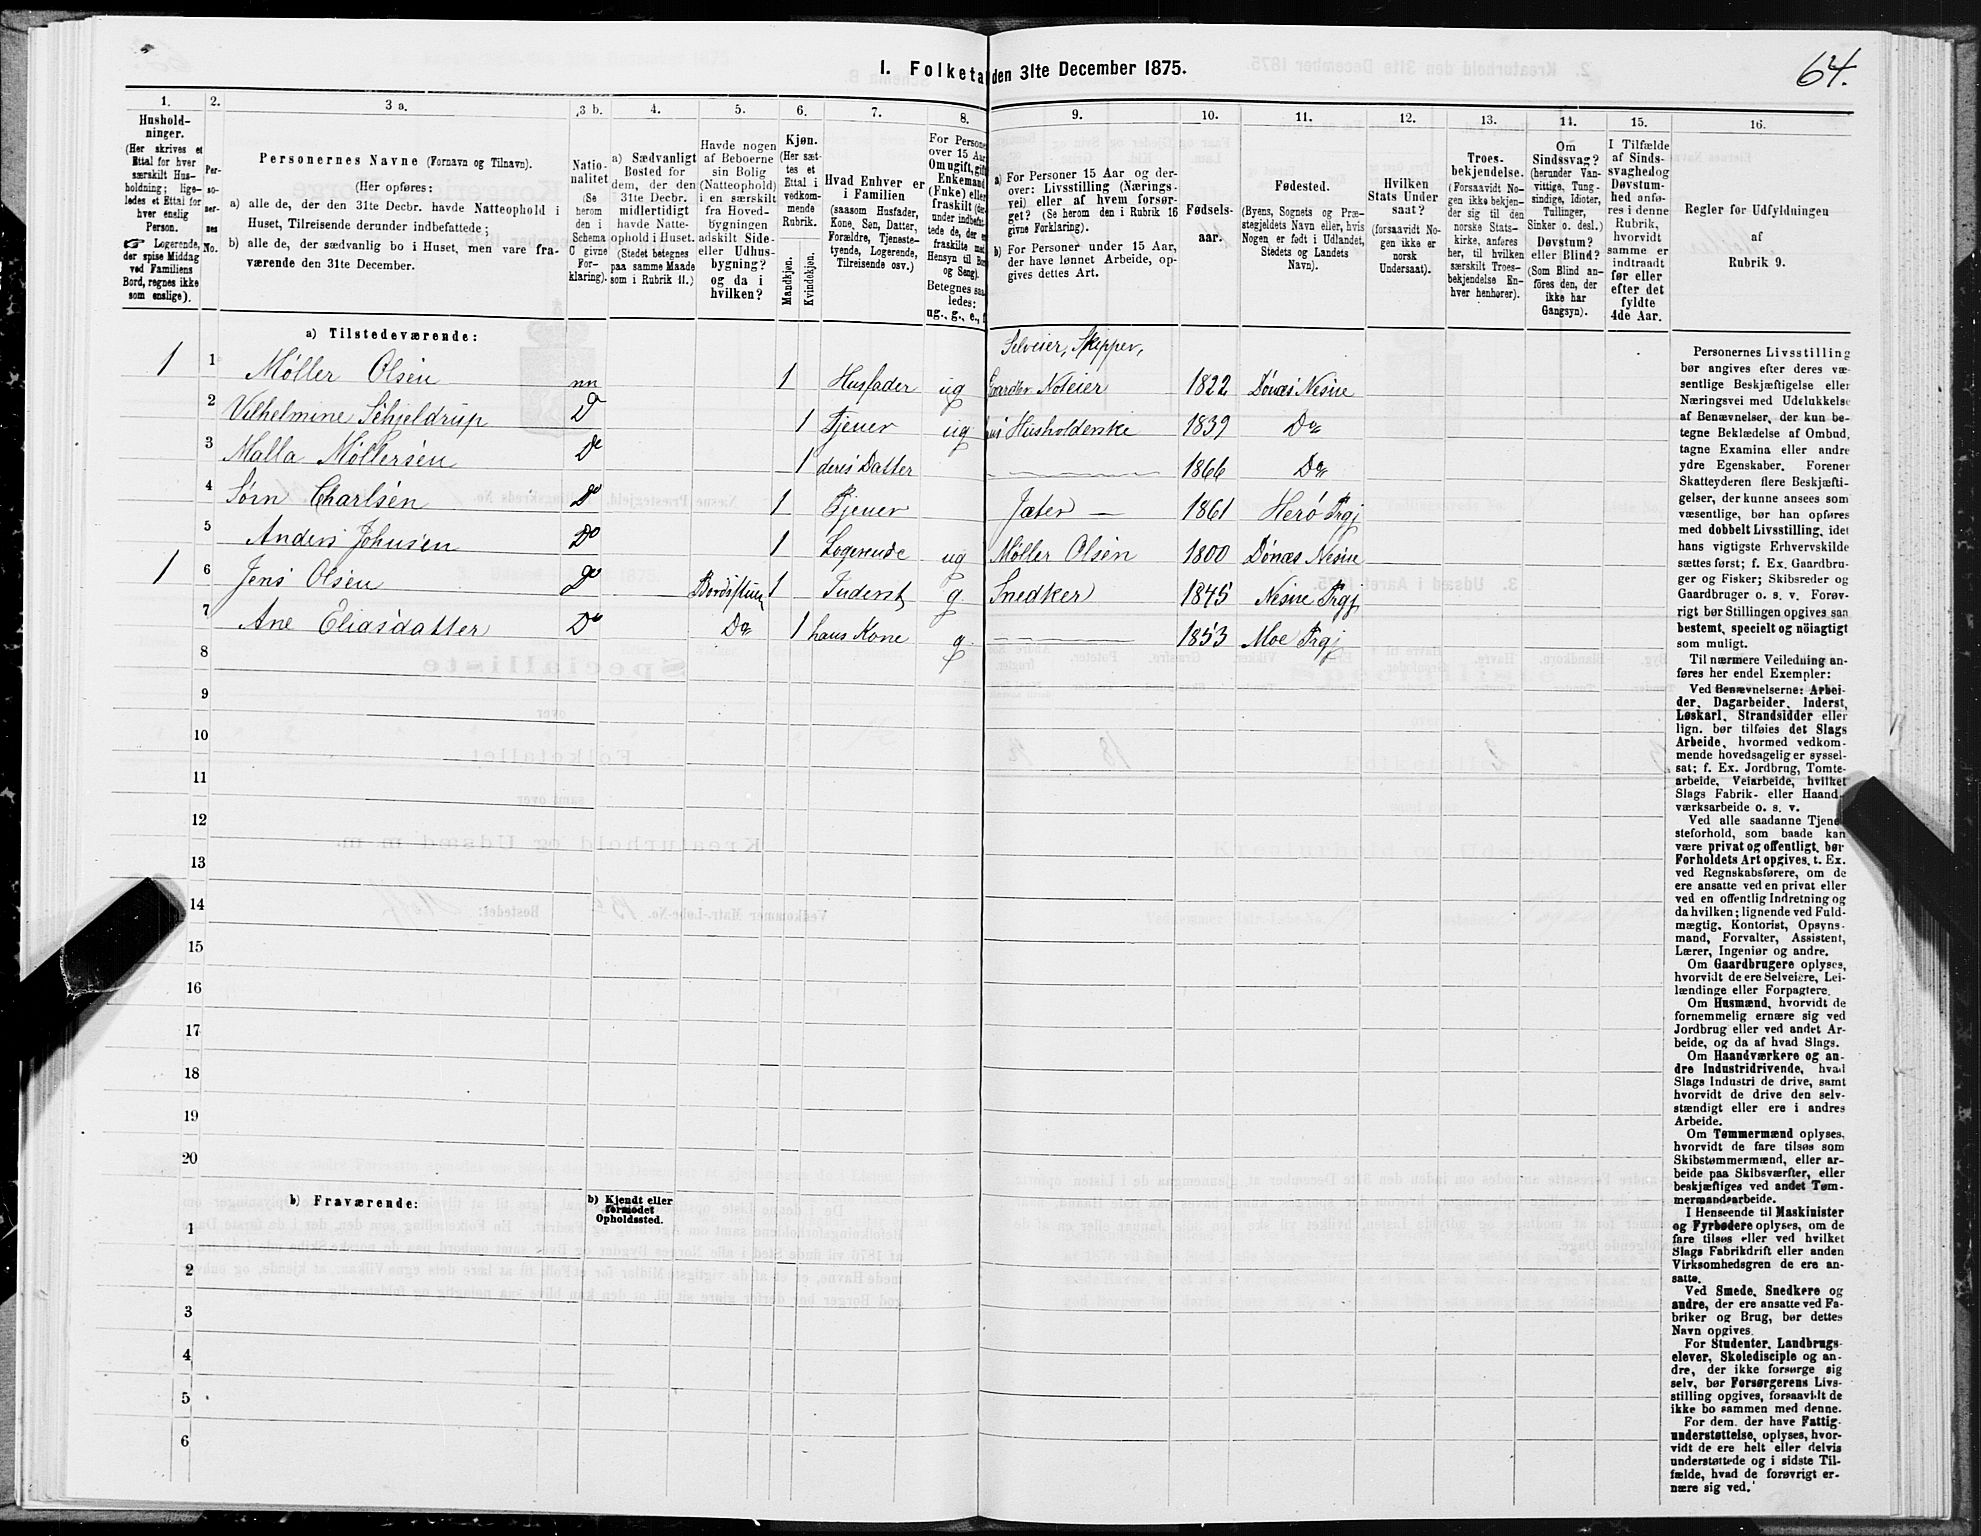 64.
I. Folketal den 31te December 1875.
1. 2. 3 a. 3 b. 4. 5. 6. 7. 8. 9. 10. 11. 12. 13. 14. 15. 16.
Hushold-
ninger.
(Her skrives et
Ettal for hver
særskilt Hus-
holdning; lige-
ledes et Ettal for
hver enslig
Person.
☞ Logerende,
der spise Middag
ved Familiens
Bord, regnes ikke
som enslige).
Per-
so-
ner-
nes
No.
Personernes Navne (Fornavn og Tilnavn).
(Her opføres:
a) alle de, der den 31te Decbr. havde Natteophold i
Huset, Tilreisende derunder indbefattede;
b) alle de, der sædvanlig bo i Huset, men vare fra-
værende den 31te December.
Natio-
nalitet
(Se
herom
den i
Schema
C givne
For-
klaring).
a) Sædvanligt
Bosted for
dem, der den
31te Decbr.
midlertidigt
havde Natte-
ophold i Huset.
(Stedet betegnes
paa samme Maade
som i Rubrik 11.)
Havde nogen
af Beboerne
sin Bolig
(Natteophold)
i en særskilt
fra Hoved-
bygningen
adskilt Side-
eller Udhus-
bygning?
og da i
hvilken?
Kjøn.
(Her sæt-
tes et
Ettal i
vedkom-
mende
Rubrik.
Mandkjøn.
Kvindekjøn.
Hvad Enhver er
i Familien
(saasom Husfader,
Kone, Søn, Datter,
Forældre, Tjeneste-
tyende, Logerende,
Tilreisende osv.)
For Personer
over 15 Aar
Om ugift, gift
Enkemand
(Enke) eller
fraskilt (der-
under indbefat-
tede de, der er
fraskilte med
Hensyn til Bord
og Seng).
Betegnes saa-
ledes:
ug., g., e., f.
a) For Personer 15 Aar og der-
over: Livsstilling (Nærings-
vei) eller af hvem forsør-
get? (Se herom den i Rubrik 16
givne Forklaring).
b) For Personer under 15 Aar,
der have lønnet Arbeide, op-
gives dettes Art.
Fødsels-
aar.
Fødested.
(Byens, Sognets og Præ-
stegjeldets Navn eller, hvis
Nogen er født i Udlandet,
Stedets og Landets
Navn).
Hvilken
Stats Under
saat?
(forsaavidt No-
gen ikke er
norsk
Undersaat).
Troes-
bekjendelse.
(Forsaavidt No-
gen ikke bekjen-
der sig til den
norske Stats-
kirke, anføres
her, til hvilken
særskilt Troes-
bekjendelse En-
hver henhører).
Om
Sindssvag?
(herunder Van-
vittige, Tung-
sindige, Idioter,
Tullinger,
Sinker o. desl.)
Døvstum?
eller Blind?
(Som Blind an-
føres den, der
ikke har
Gangsyn).
I Tilfælde
af Sinds-
svaghed og
Døvstum-
hed anfø-
res i denne
Rubrik,
hvorvidt
samme er
indtraadt
før eller
efter det
fyldte
4de Aar.
Regler for Udfyldningen
af
Rubrik 9.
a) Tilstedeværende:
Selveier, Skipper,
1 1 Møller Olsen nn 1 Husfader ug Gaardbr Noteier 1822 Dønæs Nesne
2 Vilhelmine Schjeldrup Do 1 Tjener ug Husholderske 1839 Do
3 Malla Møllersen Do 1 deres Datter 1866 Do
4 Sørn Charlsen Do 1 Tjener Jæter 1861 Herø Prgj
5 Anders Johnsen Do 1 Logerende ug Møller Olsen 1800 Dønæs Nesne
1 6 Jens Olsen Do Bordstuen 1 Inderst g Snedker 1845 Nesne Prgj
7 Ane Eliasdatter Do Do 1 hans Kone g 1853 Moe Prgj
8
9
10
11
12
13
14
15
16
17
18
19
20
b) Fraværende:
b) Kjendt eller
formodet
Opholdssted.
1
2
3
4
5
6
Personernes Livsstilling
bør angives efter deres væ-
sentlige Beskjæftigelse eller
Næringsvei med Udelukkelse
af Benævnelser, der kun be-
tegne Beklædelse af Ombud,
tagne Examina eller andre
ydre Egenskaber. Forener
Skatteyderen flere Beskjæfti-
gelser, der kunne ansees som
væsentlige, bør han opføres
med dobbelt Livsstilling, idet
hans vigtigste Erhvervskilde
sættes først; f. Ex. Gaardbru-
ger og Fisker; Skibsreder og
Gaardbruger o. s. v. Forøv-
rigt bør Stillingen opgives saa
bestemt, specielt og nöiagtigt
som muligt.
Til nærmere Veiledning an-
føres her endel Exempler:
Ved Benævnelserne: Arbei-
der, Dagarbeider, Inderst,
Løskarl, Strandsidder eller
lign. bør tilføies det Slags
Arbeide, hvormed vedkom-
mende hovedsagelig er syssel-
sat; f. Ex. Jordbrug, Tomte-
arbeide, Veiarbeide, hvilket
Slags Fabrik- eller Haand-
værksarbeide o. s. v.
Ved alle saadanne Tjene-
steforhold, som baade kan
være privat og offentligt, bør
Forholdets Art opgives, t. Ex.
ved Regnskabsførere, om de
ere ansatte ved en privat eller
ved en offentlig Indretning og
da hvilken; lignende ved Fuld-
mægtig, Kontorist, Opsyns-
mand, Forvalter, Assistent,
Lærer, Ingeniør og andre.
Om Gaardbrugere oplyses,
hvorvidt de ere Selveiere, Lei-
lændinge eller Forpagtere.
Om Husmænd, hvorvidt de
fornemmelig ernære sig ved
Jordbrug eller ved andet Ar-
beide, og da af hvad Slags.
Om Haandværkere og an-
dre Industridrivende, hvad
Slags Industri de drive, samt
hvorvidt de drive den selv-
stændigt eller ere i andres
Arbeide.
Om Tømmermænd oplyses,
hvorvidt de fare tilsøs som
Skibstømmermænd, eller ar-
beide paa Skibsværfter, eller
beskjæftiges ved andet Tøm-
mermandsarbeide.
I Henseende til Maskinister
og Fyrbødere oplyses, om de
fare tilsøs eller ved hvilket
Slags Fabrikdrift eller anden
Virksomhedsgren de ere an-
satte.
Ved Smede, Snedkere og
andre, der ere ansatte ved Fa-
briker og Brug, bør dettes
Navn opgives.
For Studenter, Landbrugs-
elever, Skoledisciple og an-
dre, der ikke forsørge sig
selv, bør Forsørgerens Livs-
stilling opgives, forsaavidt de
ikke bo sammen med denne.
For dem, der have Fattig-
understøttelse, oplyses, hvor-
vidt de ere helt eller delvis
understøttede og i sidste Til-
fælde, hvad de forøvrigt er-
nære sig ved.